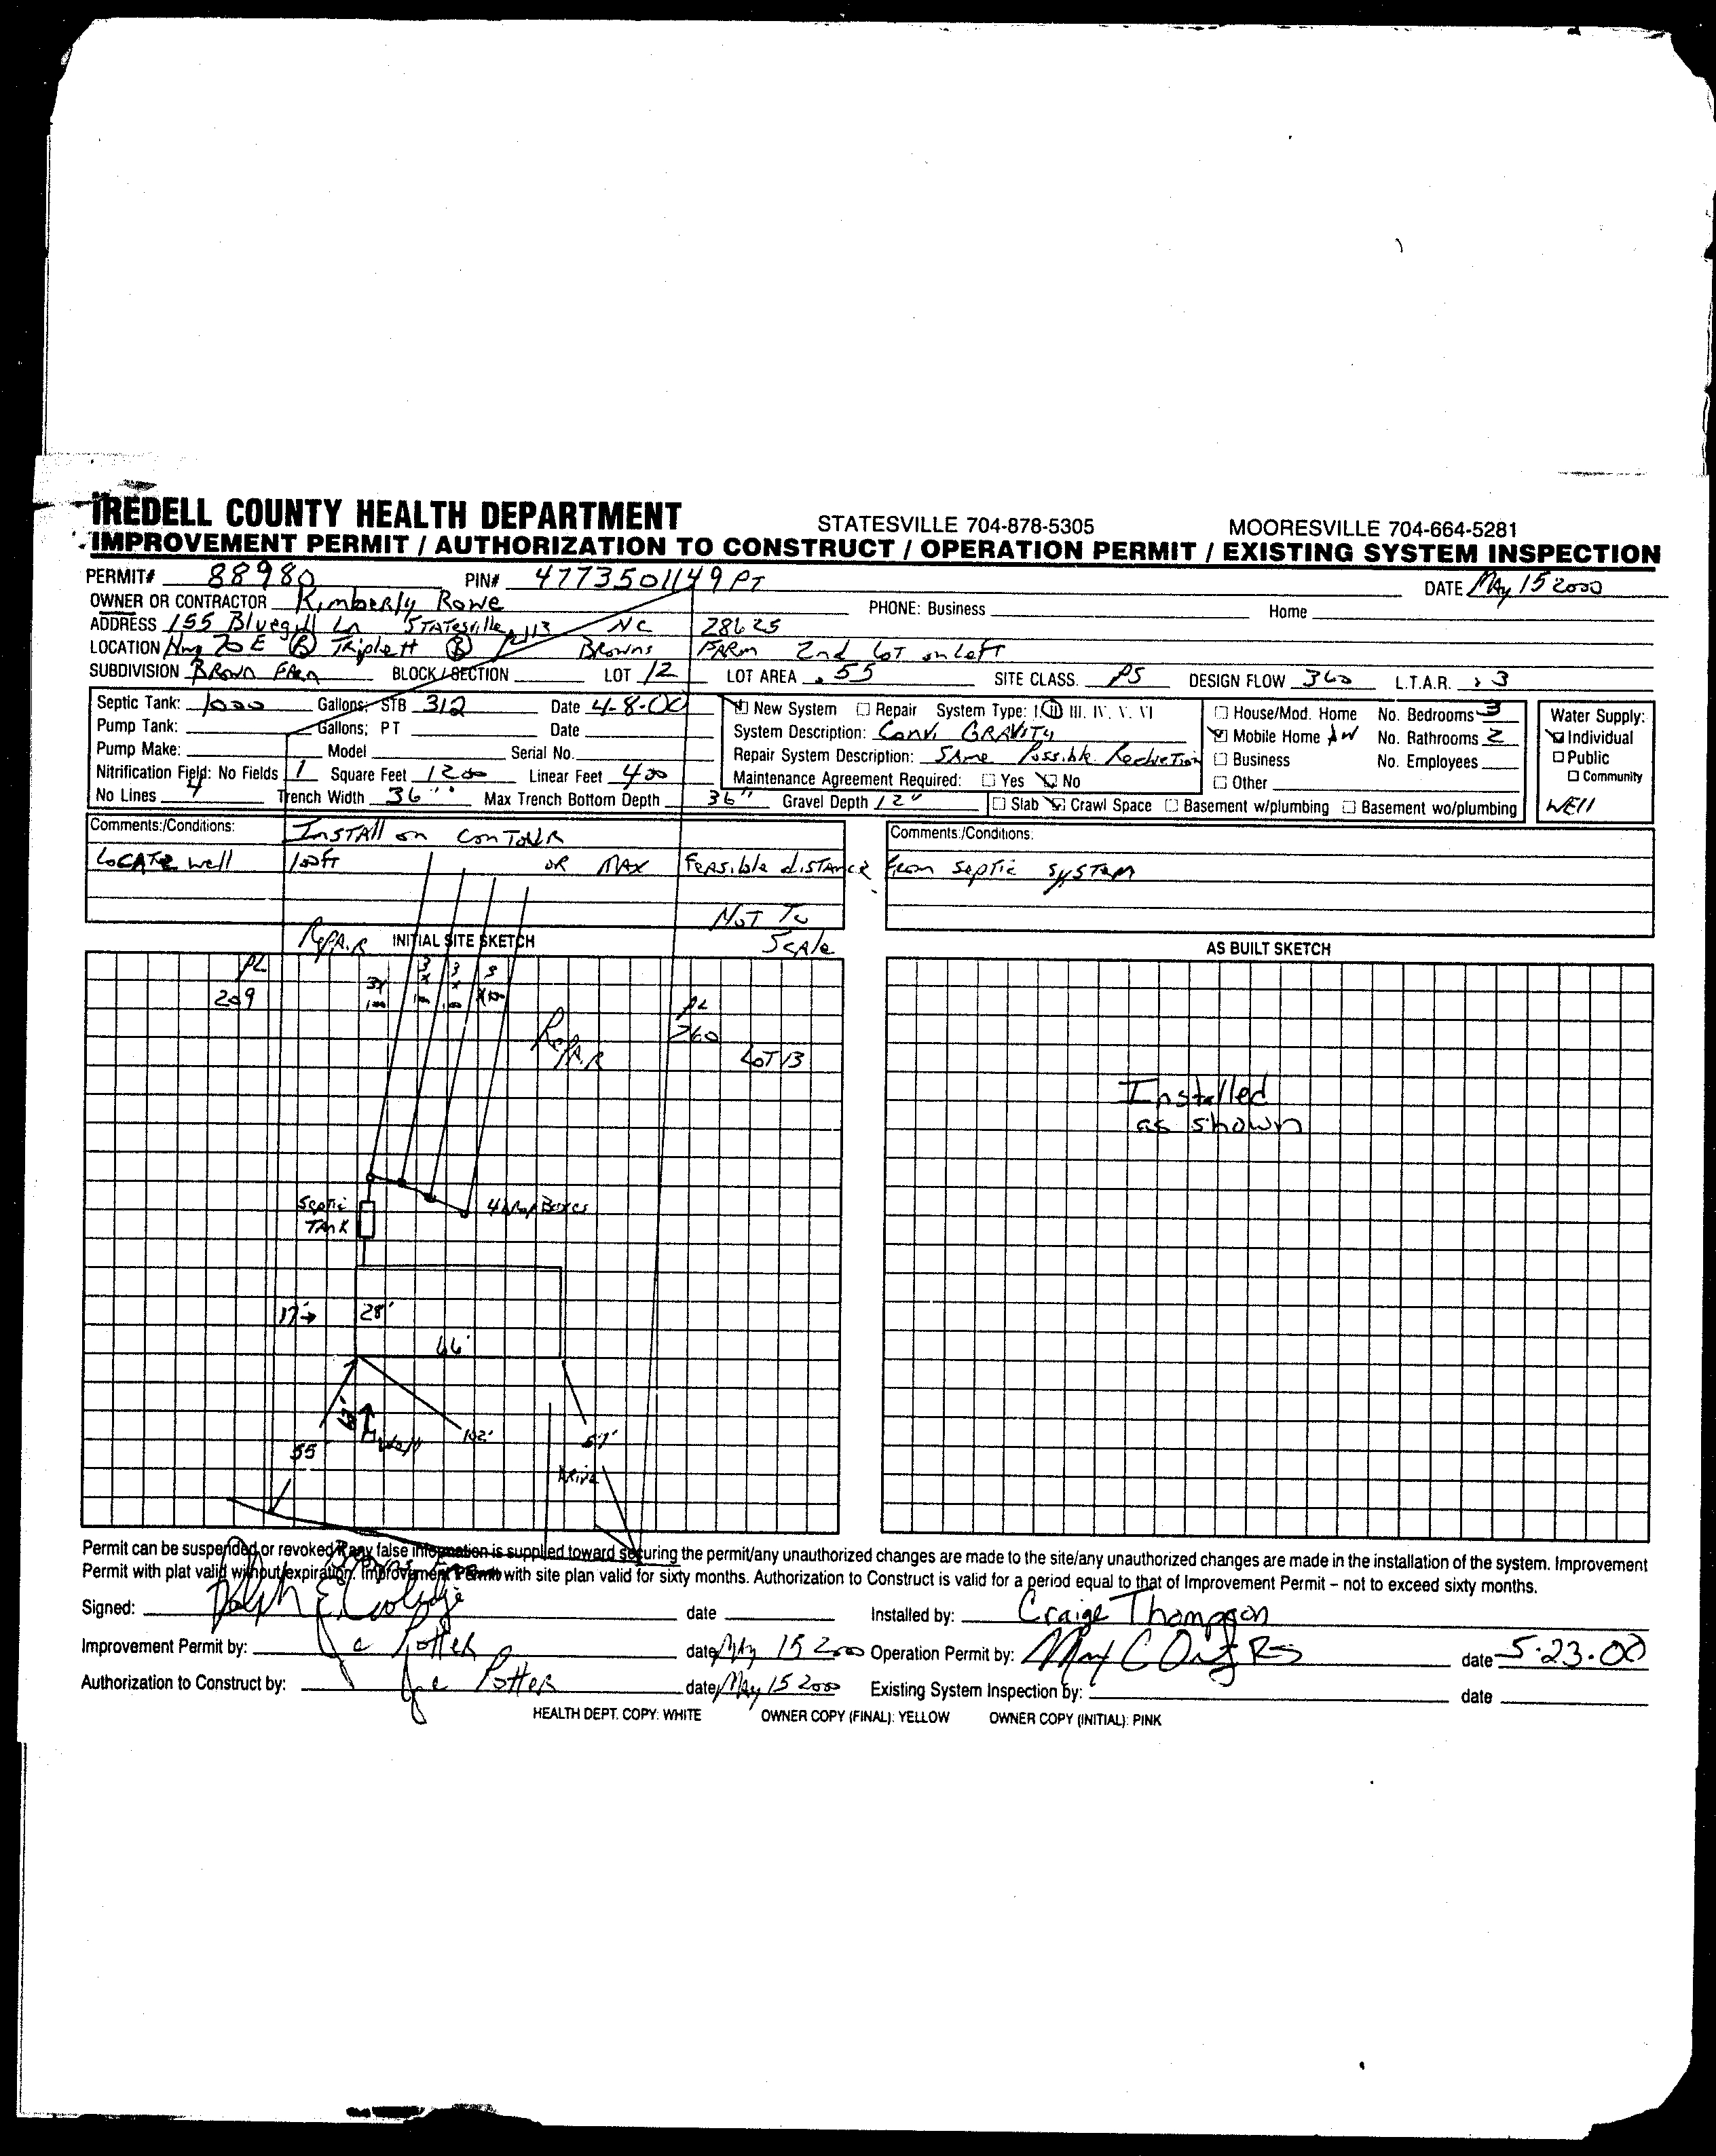 IREDELL COUNTY HEALTH DEPARTMENT STATESVILLE 704-878-5305 MOORESVILLE 704-664-5281
IMPROVEMENT PERMIT / AUTHORIZATION TO CONSTRUCT / OPERATION PERMIT / EXISTING SYSTEM INSPECTION
PERMIT# 88980 PIN# 4773501149 PT DATE MAy 15 2000
OWNER OR CONTRACTOR Kimberly Rowe PHONE: Business Home
ADDRESS 155 Bluegill Ln STATesville NC 28625
LOCATION Hwy 70 E (R) TripleTT (R) Browns FARm 2nd LoT on LefT
SUBDIVISION BRown FARm BLOCK / SECTION LOT 12 LOT AREA .55 SITE CLASS. PS DESIGN FLOW 360 L.T.A.R. .3
Septic Tank: 1000 Gallons; STB 312 Date 4-8-00 New System Repair System Type: I. II III. IV. V. VI House/Mod. Home No. Bedrooms 3 Water Supply:
Pump Tank: Gallons; PT Date System Description: Conv. GRAVITy Mobile Home DW No. Bathrooms 2 Individual
Pump Make: Model Serial No. Repair System Description: SAme Possible ReducTion Business No. Employees Public
Nitrification Field: No Fields 1 Square Feet 1200 Linear Feet 400 Maintenance Agreement Required: Yes No Other Community
No Lines 4 Trench Width 36" Max Trench Bottom Depth 36" Gravel Depth 12" Slab Crawl Space Basement w/plumbing Basement wo/plumbing WEll
Comments:/Conditions: INSTAll on conTOUR Comments:/Conditions:
LOCATE well 100ft OR MAX FEASible diSTANCE from SepTic SYSTEM
NOT To
SCAle
RePAIR INITIAL SITE SKETCH AS BUILT SKETCH
PL
209
3x 100
3 x 100
3 x 100
3 x 100
PL
260
RePAIR
LOT 13
Installed
as shown
SepTic
TANK
4 Drop Boxes
17' 28'
66'
63'
55
102'
57'
Drive
Permit can be suspended or revoked if any false information is supplied toward securing the permit/any unauthorized changes are made to the site/any unauthorized changes are made in the installation of the system. Improvement
Permit with plat valid without expiration. Improvement Permit with site plan valid for sixty months. Authorization to Construct is valid for a period equal to that of Improvement Permit – not to exceed sixty months.
Signed: date Installed by: Craige Thompson
Improvement Permit by: Joe Potter date MAy 15 2000 Operation Permit by: date 5-23-00
Authorization to Construct by: Joe Potter date May 15 2000 Existing System Inspection by: date
HEALTH DEPT. COPY: WHITE OWNER COPY (FINAL): YELLOW OWNER COPY (INITIAL): PINK